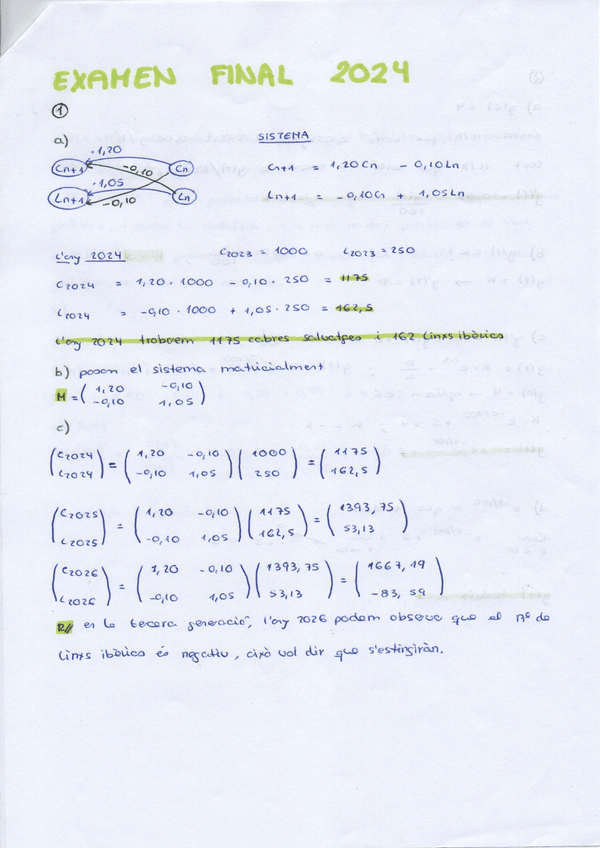 EXAMEN FINAL 2024
1
a) SISTEMA
·1,20
Cn+1 -0,10 Cn Cn+1 = 1,20Cn - 0,10Ln
·1,05
Ln+1 -0,10 Ln Ln+1 = -0,10Cn + 1,05Ln
L'any 2024 C2023 = 1000 L2023 = 250
C2024 = 1,20 · 1000 - 0,10 · 250 = 1175
L2024 = -0,10 · 1000 + 1,05 · 250 = 162,5
L'any 2024 trobarem 1175 cabres salvatges i 162 linxs ibèrics
b) posem el sistema matricialment
M = ( 1,20 -0,10 )
( -0,10 1,05 )
c)
( C2024 ) = ( 1,20 -0,10 ) ( 1000 ) = ( 1175 )
( L2024 ) ( -0,10 1,05 ) ( 250 ) ( 162,5 )
( C2025 ) = ( 1,20 -0,10 ) ( 1175 ) = ( 1393,75 )
( L2025 ) ( -0,10 1,05 ) ( 162,5 ) ( 53,13 )
( C2026 ) = ( 1,20 -0,10 ) ( 1393,75 ) = ( 1667,19 )
( L2026 ) ( -0,10 1,05 ) ( 53,13 ) ( -83,59 )
R// en la tercera generació, l'any 2026 podem observar que el nº de
linxs ibèrics és negatiu, això vol dir que s'extingiràn.